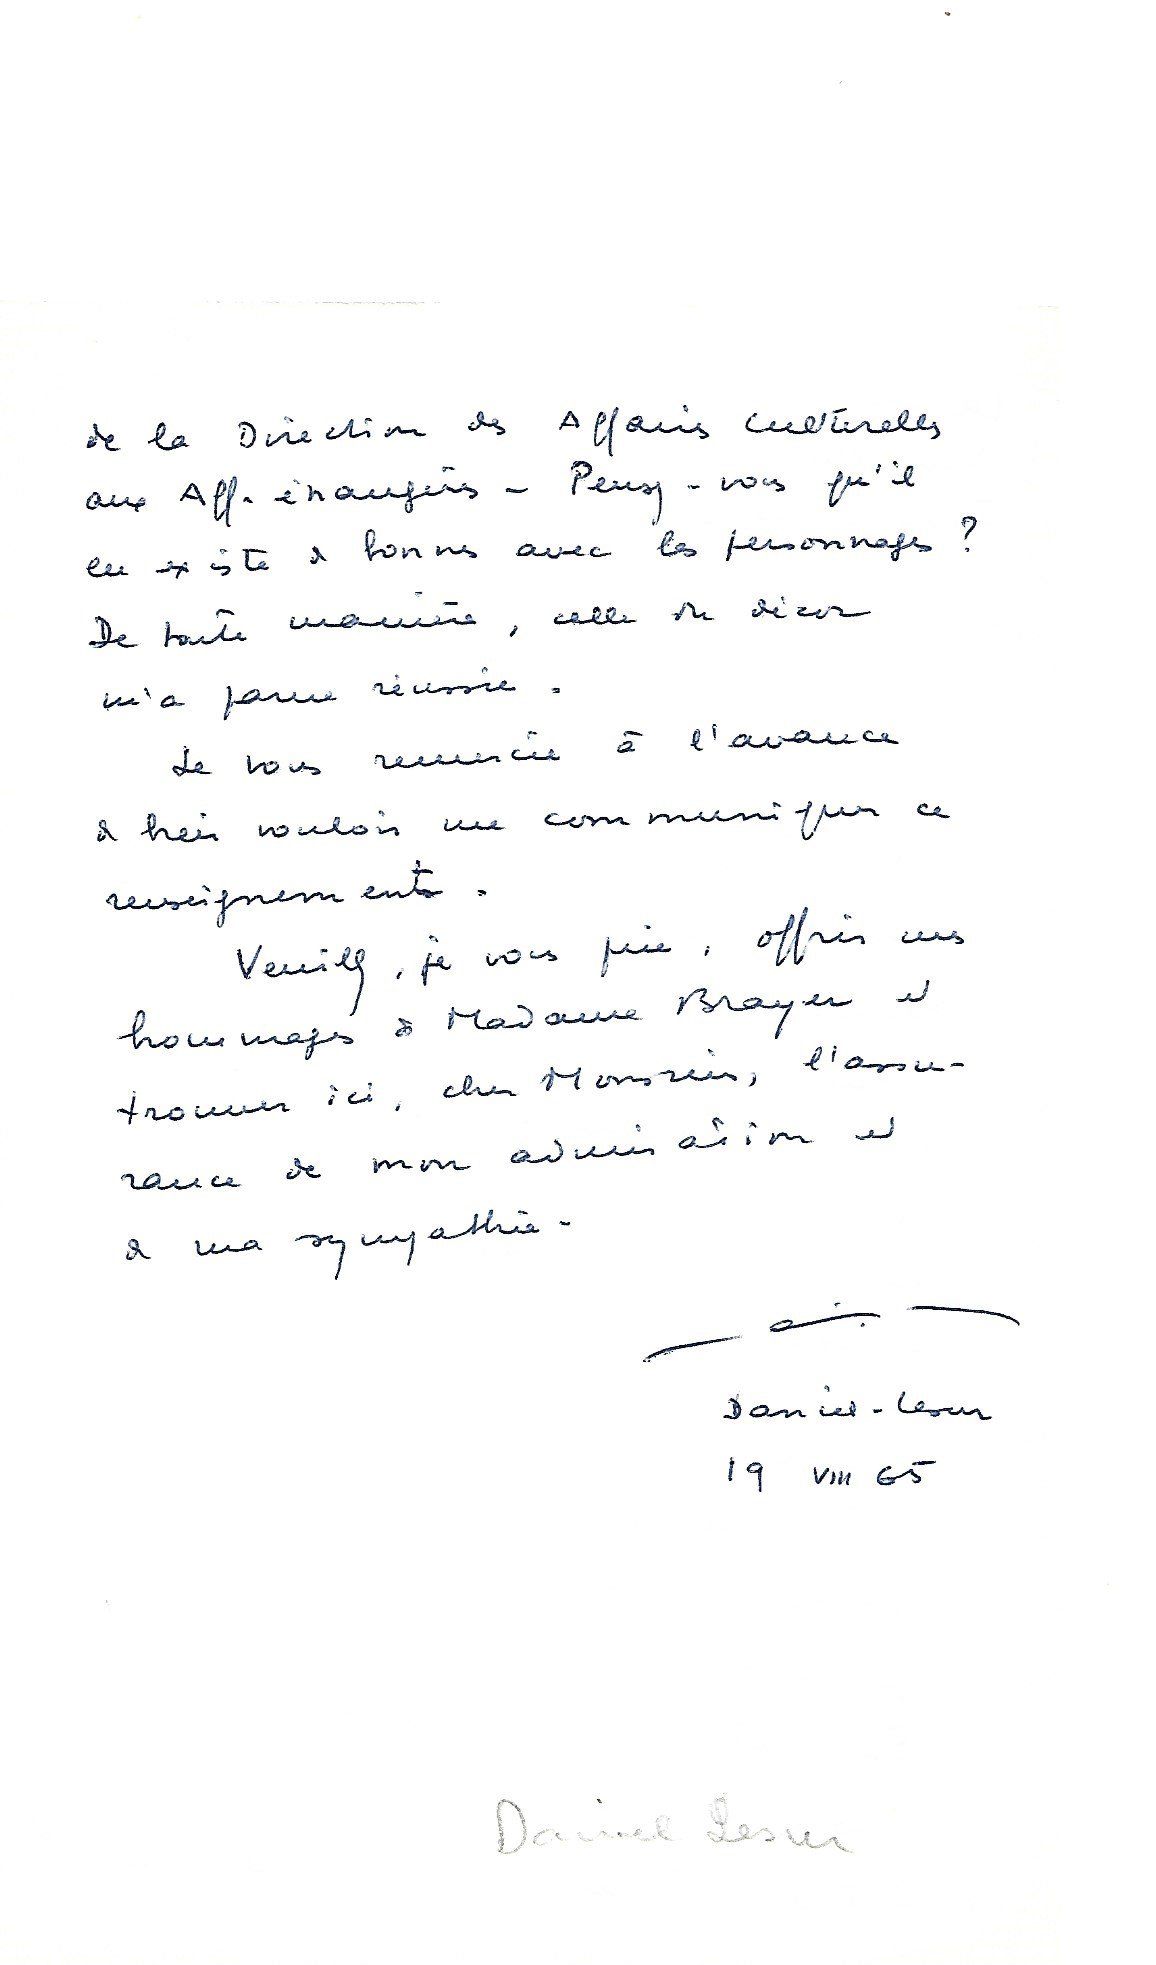 de la Direction des Affaires Culturelles
aux Aff. étrangères - Pensez-vous qu'il
en existe de bonnes avec les personnages ?
De toute manière, celle du décor
m'a parue réussie.
Je vous remercie à l'avance
de bien vouloir me communiquer ce
renseignements.
Veuillez, je vous prie, offrir mes
hommages à Madame Brayer et
trouver ici, cher Monsieur, l'assu-
rance de mon admiration et
de ma sympathie -
Daniel-Lesur
19 VIII 65
Daniel Lesur